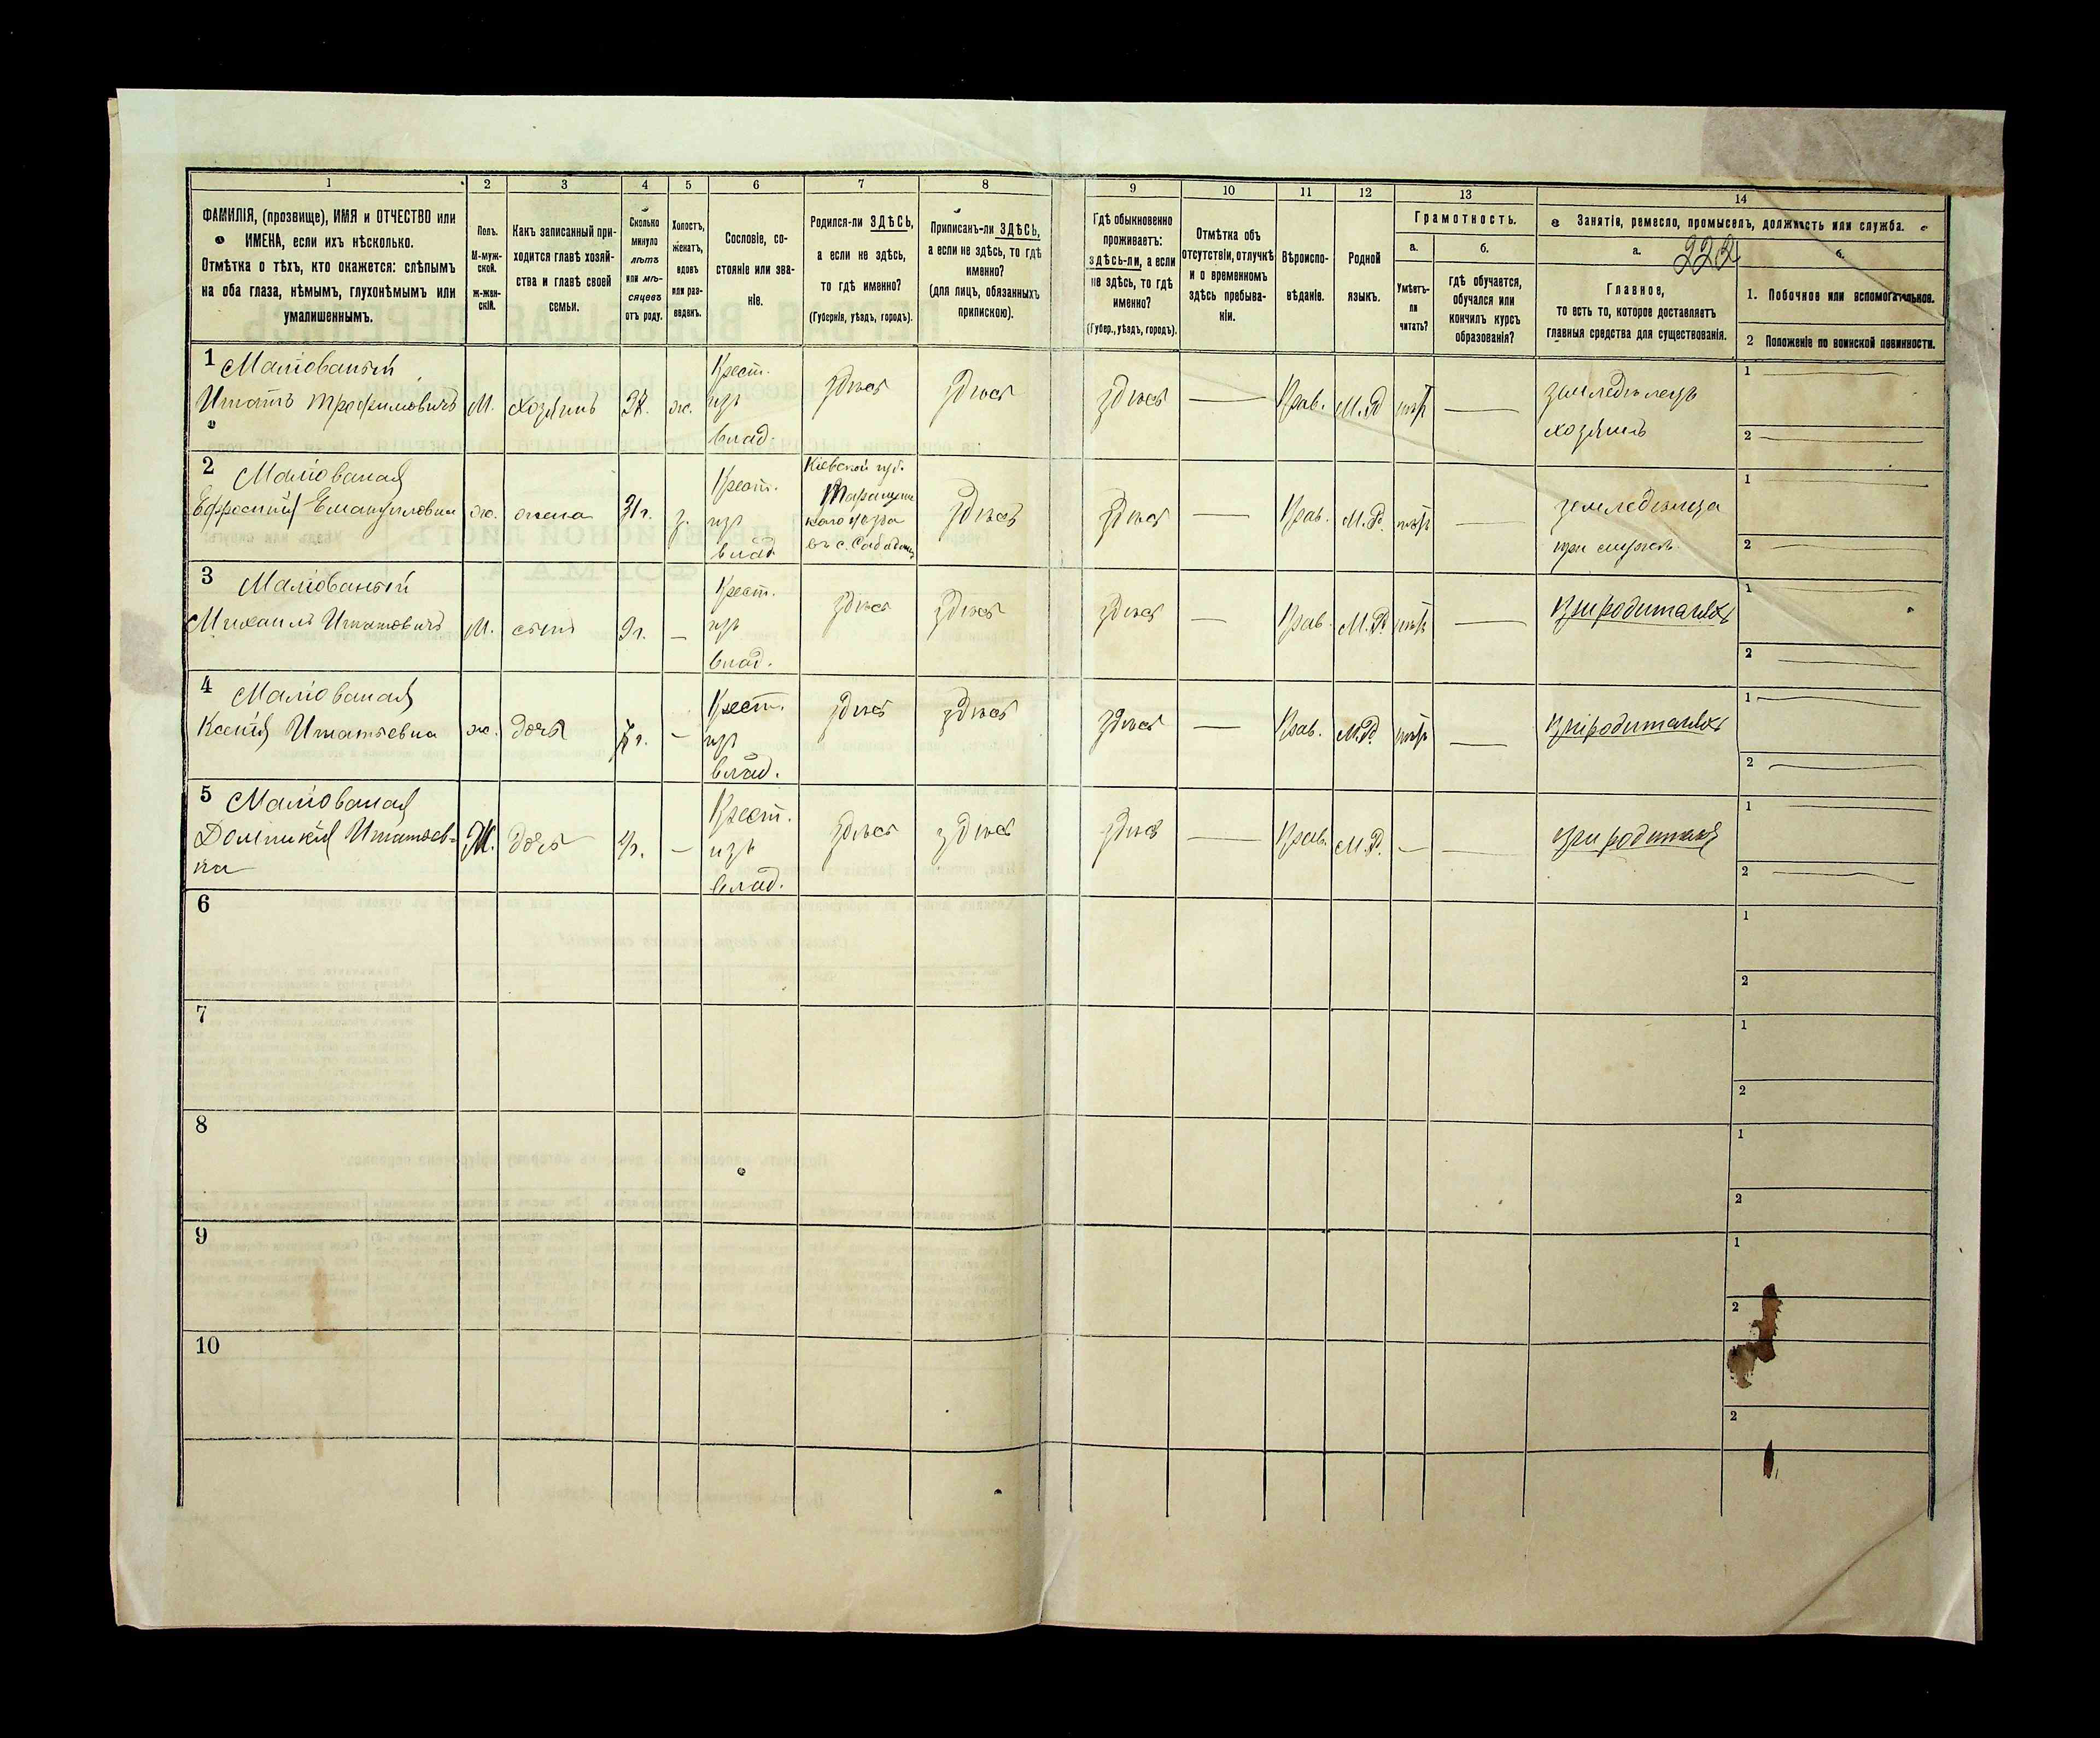 1
2
3
4
5
6
7
8
9
10
11
12
13
14
ФАМИЛІЯ, (прозвище), ИМЯ и ОТЧЕСТВО или
ИМЕНА, если ихъ нѣсколько.
Отмѣтка о тѣхъ, кто окажется: слѣпымъ
на оба глаза, нѣмымъ, глухонѣмымъ или
умалишеннымъ.
Полъ.
М-муж-
ской.
Ж-жен-
скій.
Какъ записанный при-
ходится главѣ хозяй-
ства и главѣ своей
семьи.
Сколько
минуло
лѣтъ
или мѣ-
сяцевъ
отъ роду.
Холостъ,
женатъ,
вдовъ
или раз-
веденъ.
Сословіе, со-
стояніе или зва-
ніе.
Родился-ли ЗДѢСЬ,
а если не здѣсь,
то гдѣ именно?
(Губернія, уѣздъ, городъ).
Приписанъ-ли ЗДѢСЬ,
а если не здѣсь, то гдѣ
именно?
(для лицъ, обязанныхъ
припискою).
Гдѣ обыкновенно
проживаетъ:
здѣсь-ли, а если
не здѣсь, то гдѣ
именно?
(Губер., уѣздъ, городъ).
Отмѣтка объ
отсутствіи, отлучкѣ
и о временномъ
здѣсь пребыва-
ніи.
Вѣроиспо-
вѣданіе.
Родной
языкъ.
Грамотность.
а.
б.
Умѣетъ-
ли
читать?
гдѣ обучается,
обучался или
кончилъ курсъ
образованія?
Занятія, ремесло, промыселъ, должность или служба.
а.
222
б.
Главное,
то есть то, которое доставляетъ
главныя средства для существованія.
1. Побочное или вспомогательное.
2 Положеніе по воинской повинности.
1 Маліованый
Игнатъ Трофимовичъ М. хозяинъ ж. Крест. изъ влад. здѣсь здѣсь здѣсь — Прав. М.Р. нѣтъ — земледѣлецъ
хозяинъ
1 —
2 —
2 Маліованая
Ефросинія Емануиловна ж. жена 31 г. з. Крест. изъ влад. Кіевской губ. здѣсь здѣсь — Прав. М.Р. нѣтъ — земледѣлица
при мужѣ
1 —
2 —
3 Маліованый
Михаилъ Игнатовичъ М. сынъ 9 г. — Крест. изъ влад. здѣсь здѣсь здѣсь — Прав. М.Р. нѣтъ — при родителяхъ
1 —
2 —
4 Маліованая
Ксенія Игнатьевна ж. дочь — Крест. изъ влад. здѣсь здѣсь здѣсь — Прав. М.Р. нѣтъ — при родителяхъ
1 —
2 —
5 Маліованая
Домникія Игнатьев-
на Ж. дочь — Крест. изъ влад. здѣсь здѣсь здѣсь — Прав. М.Р. — — при родителяхъ
1 —
2 —
6
1
2
7
1
2
8
1
2
9
1
2
10
2